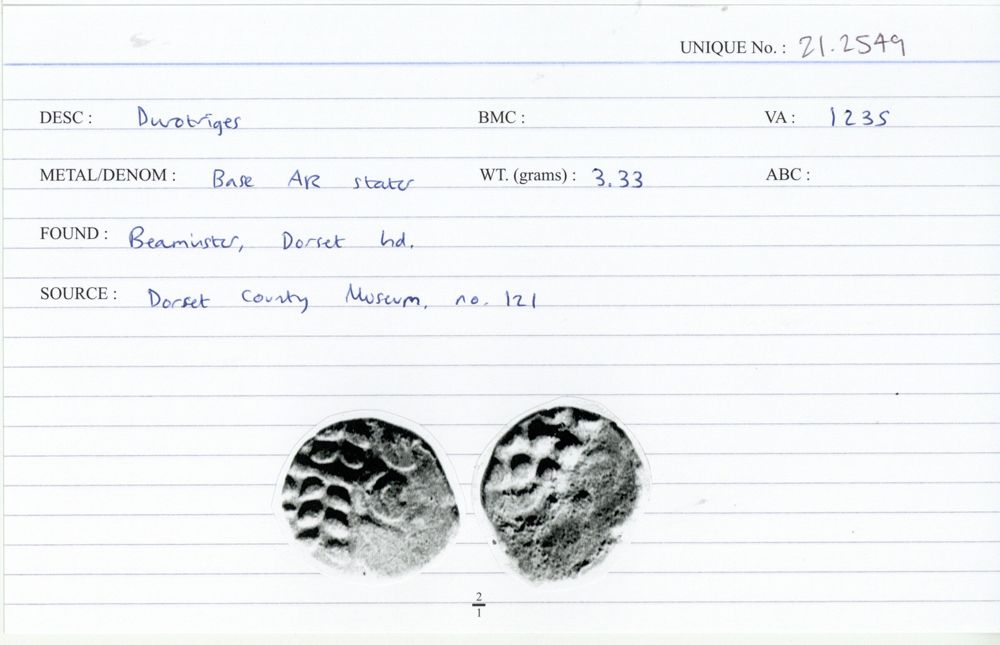 UNIQUE No. : 21.2549
DESC : Durotriges BMC : VA : 1235
METAL/DENOM : Base AR stater WT. (grams) : 3.33 ABC :
FOUND : Beaminster, Dorset hd.
SOURCE : Dorset County Museum, no. 121
2
1